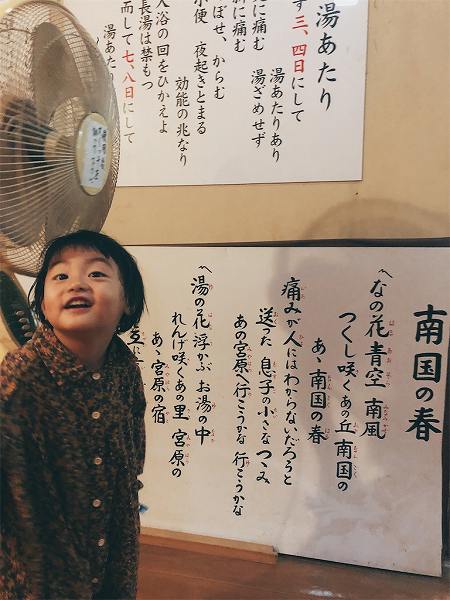 湯あたり
ず 三、四日にして
湯あたりあり
に痛む 湯ざめせず
に痛む
ぼせ、からむ
小便 夜起きとまる
効能の兆なり
入浴の回をひかえよ
長湯は禁もつ
而して七、八日にして
湯あたり
南国の春
〽なの花青空 南風
つくし咲くあの丘 南国の
あゝ南国の春
痛みが人にはわからないだろうと
送った 息子の小さなつゝみ
あの宮原へ行こうかな 行こうかな
〽湯の花浮かぶ お湯の中
れんげ咲くあの里 宮原の
あゝ宮原の宿
互に